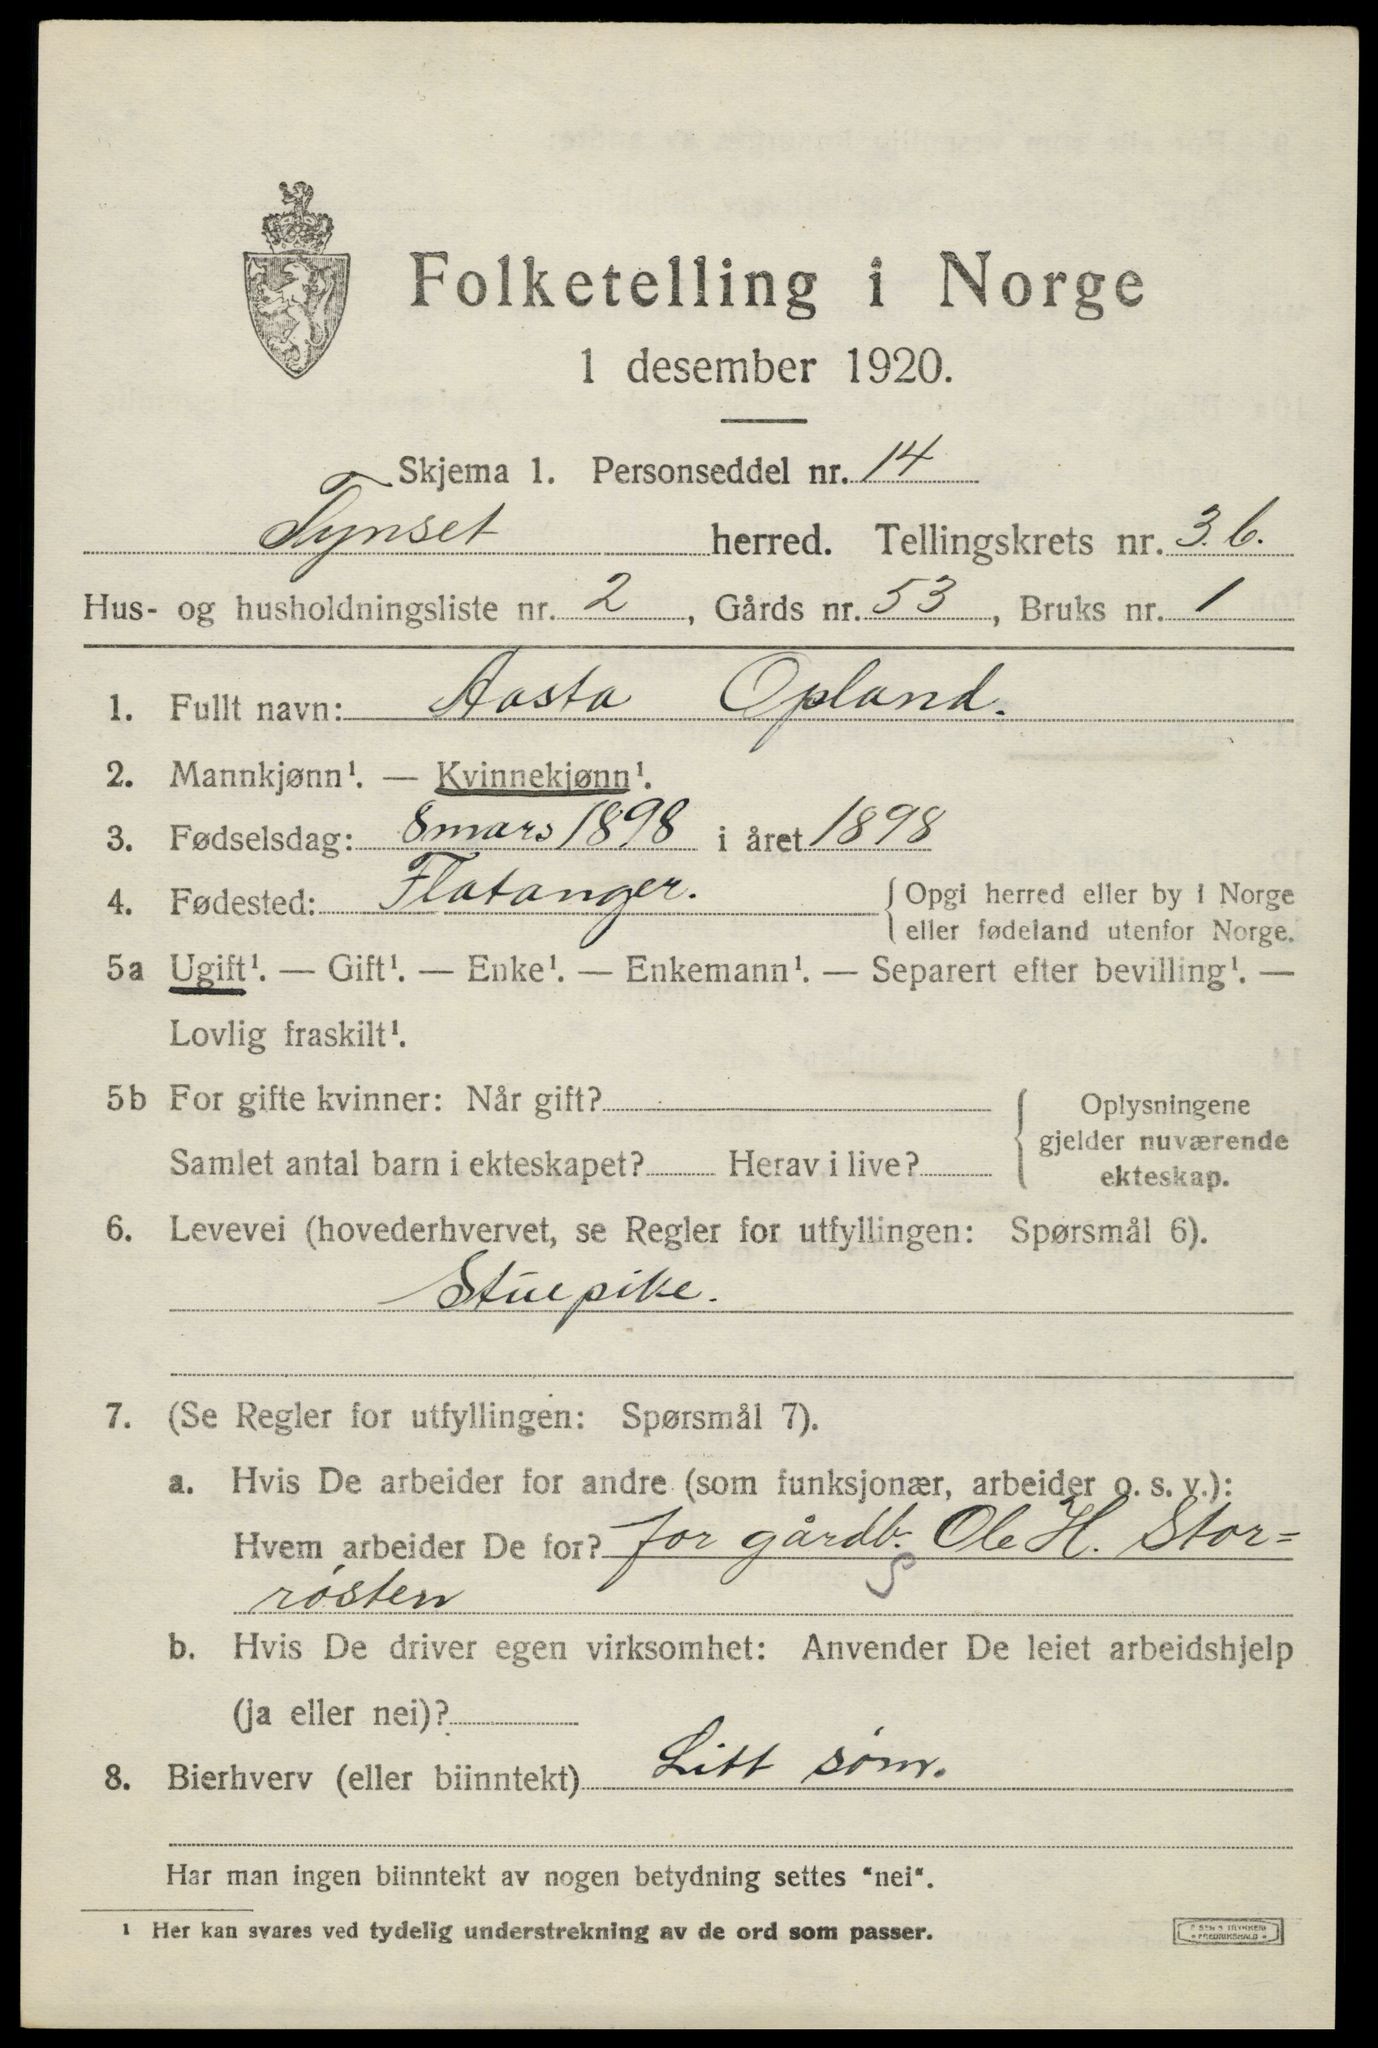 Folketelling i Norge
1 desember 1920.
Skjema 1. Personseddel nr. 14
Tynset herred. Tellingskrets nr. 3.b.
Hus- og husholdningsliste nr. 2, Gårds nr. 53, Bruks nr. 1
1. Fullt navn: Aasta Opland.
2. Mannkjønn¹. — Kvinnekjønn¹.
3. Fødselsdag: 8 mars 1898 i året 1898
4. Fødested: Flatanger. { Opgi herred eller by i Norge
eller fødeland utenfor Norge.
5a Ugift¹. — Gift¹. — Enke¹. — Enkemann¹. — Separert efter bevilling¹. —
Lovlig fraskilt¹.
5b For gifte kvinner: Når gift?
Samlet antal barn i ekteskapet? Herav i live?
{ Oplysningene
gjelder nuværende
ekteskap.
6. Levevei (hovederhvervet, se Regler for utfyllingen: Spørsmål 6).
Stuepike.
7. (Se Regler for utfyllingen: Spørsmål 7).
a. Hvis De arbeider for andre (som funksjonær, arbeider o. s. v.):
Hvem arbeider De for? for gårdb. Ole H. Stor=
røsten
S
b. Hvis De driver egen virksomhet: Anvender De leiet arbeidshjelp
(ja eller nei)?
8. Bierhverv (eller biinntekt) Litt søm.
Har man ingen biinntekt av nogen betydning settes "nei".
¹ Her kan svares ved tydelig understrekning av de ord som passer.
TRYKKERI
FREDRIKSHALD